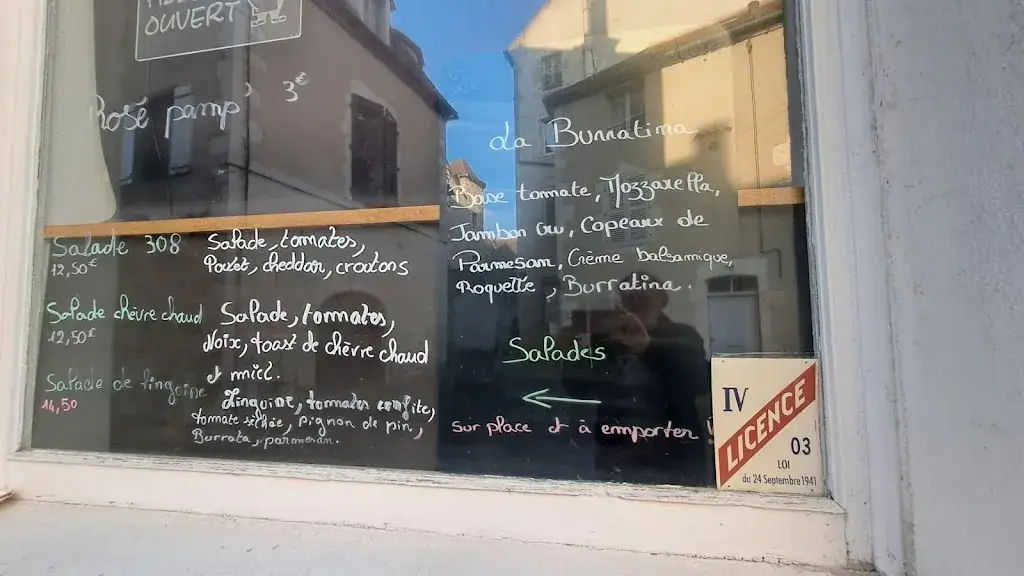 OUVERT
Rosé pamp' 3€
La Burratina
Base tomate, Mozzarella,
Jambon cru, Copeaux de
Parmesan, Crème balsamique,
Roquette, Burratina.
Salade 308
12,50€
Salade, tomates,
Poulet, cheddar, croutons
Salade chèvre chaud
12,50€
Salade, tommates,
Noix, toast de chèvre chaud
et miel.
Salade de linguine
14,50
Linguine, tomates confite,
tomate séchée, pignon de pin,
Burrata, parmesan.
Salades
←
Sur place et à emporter !
IV
LICENCE
03
LOI
du 24 Septembre 1941